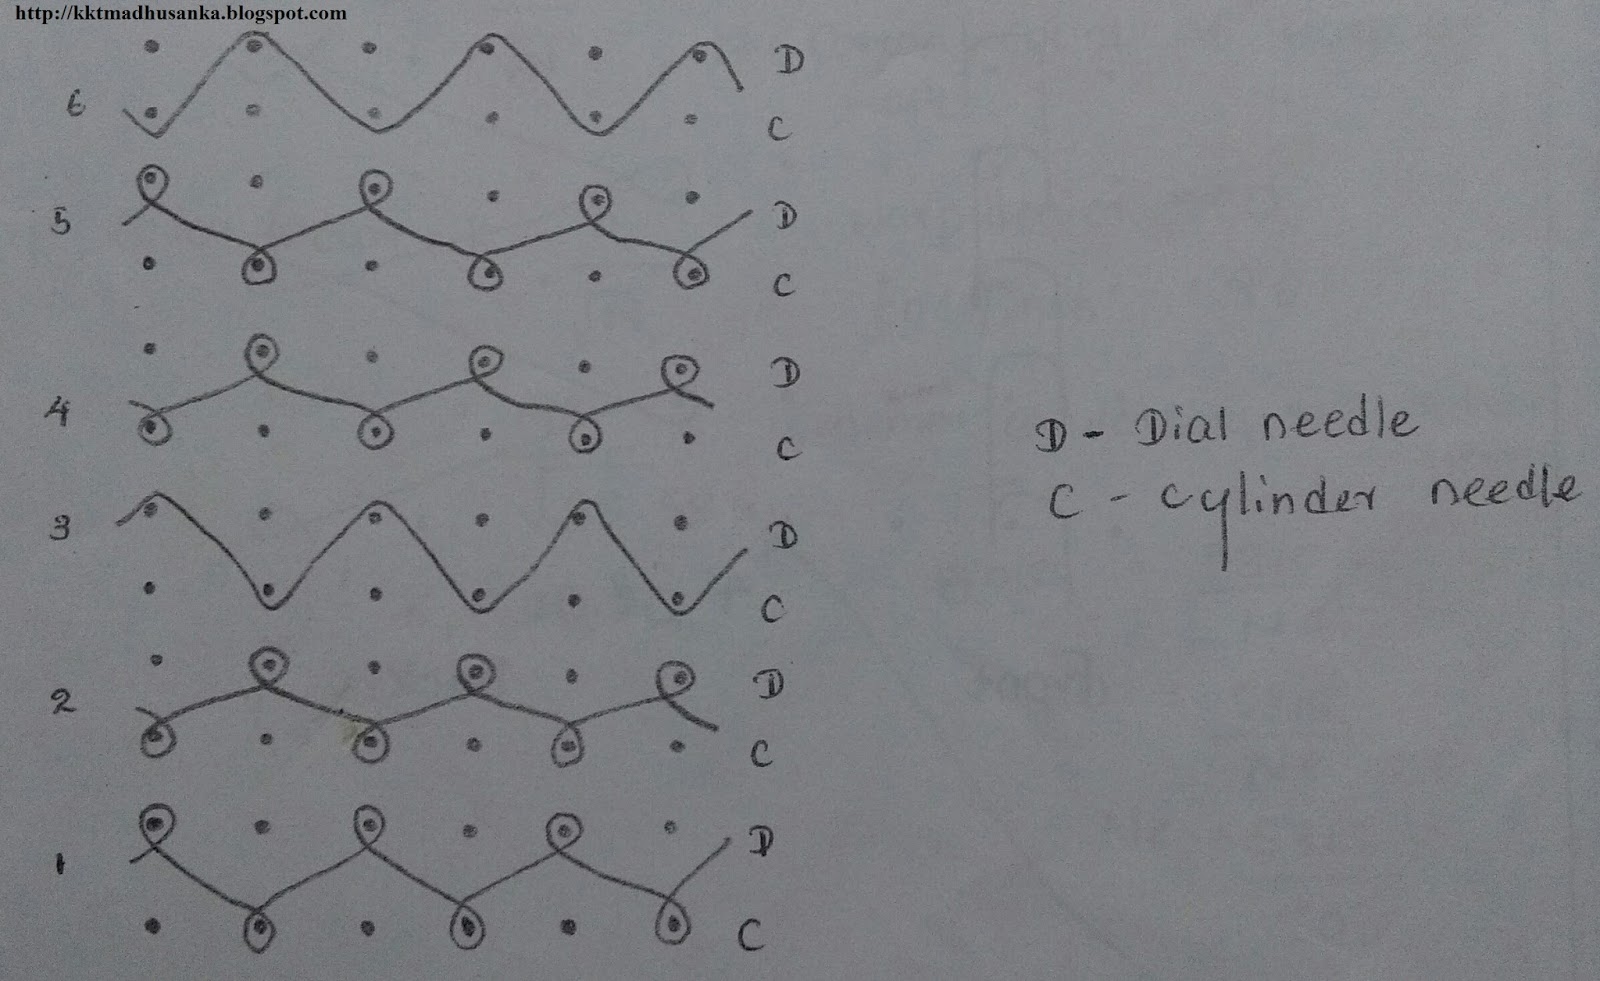 http://kktmadhusanka.blogspot.com
D
6
C
5
D
C
D
4
C
D - Dial needle
C - cylinder needle
3
D
C
D
2
C
D
1
C